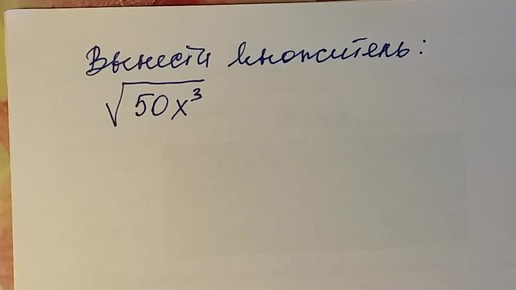 Вынести множитель:
√50x³